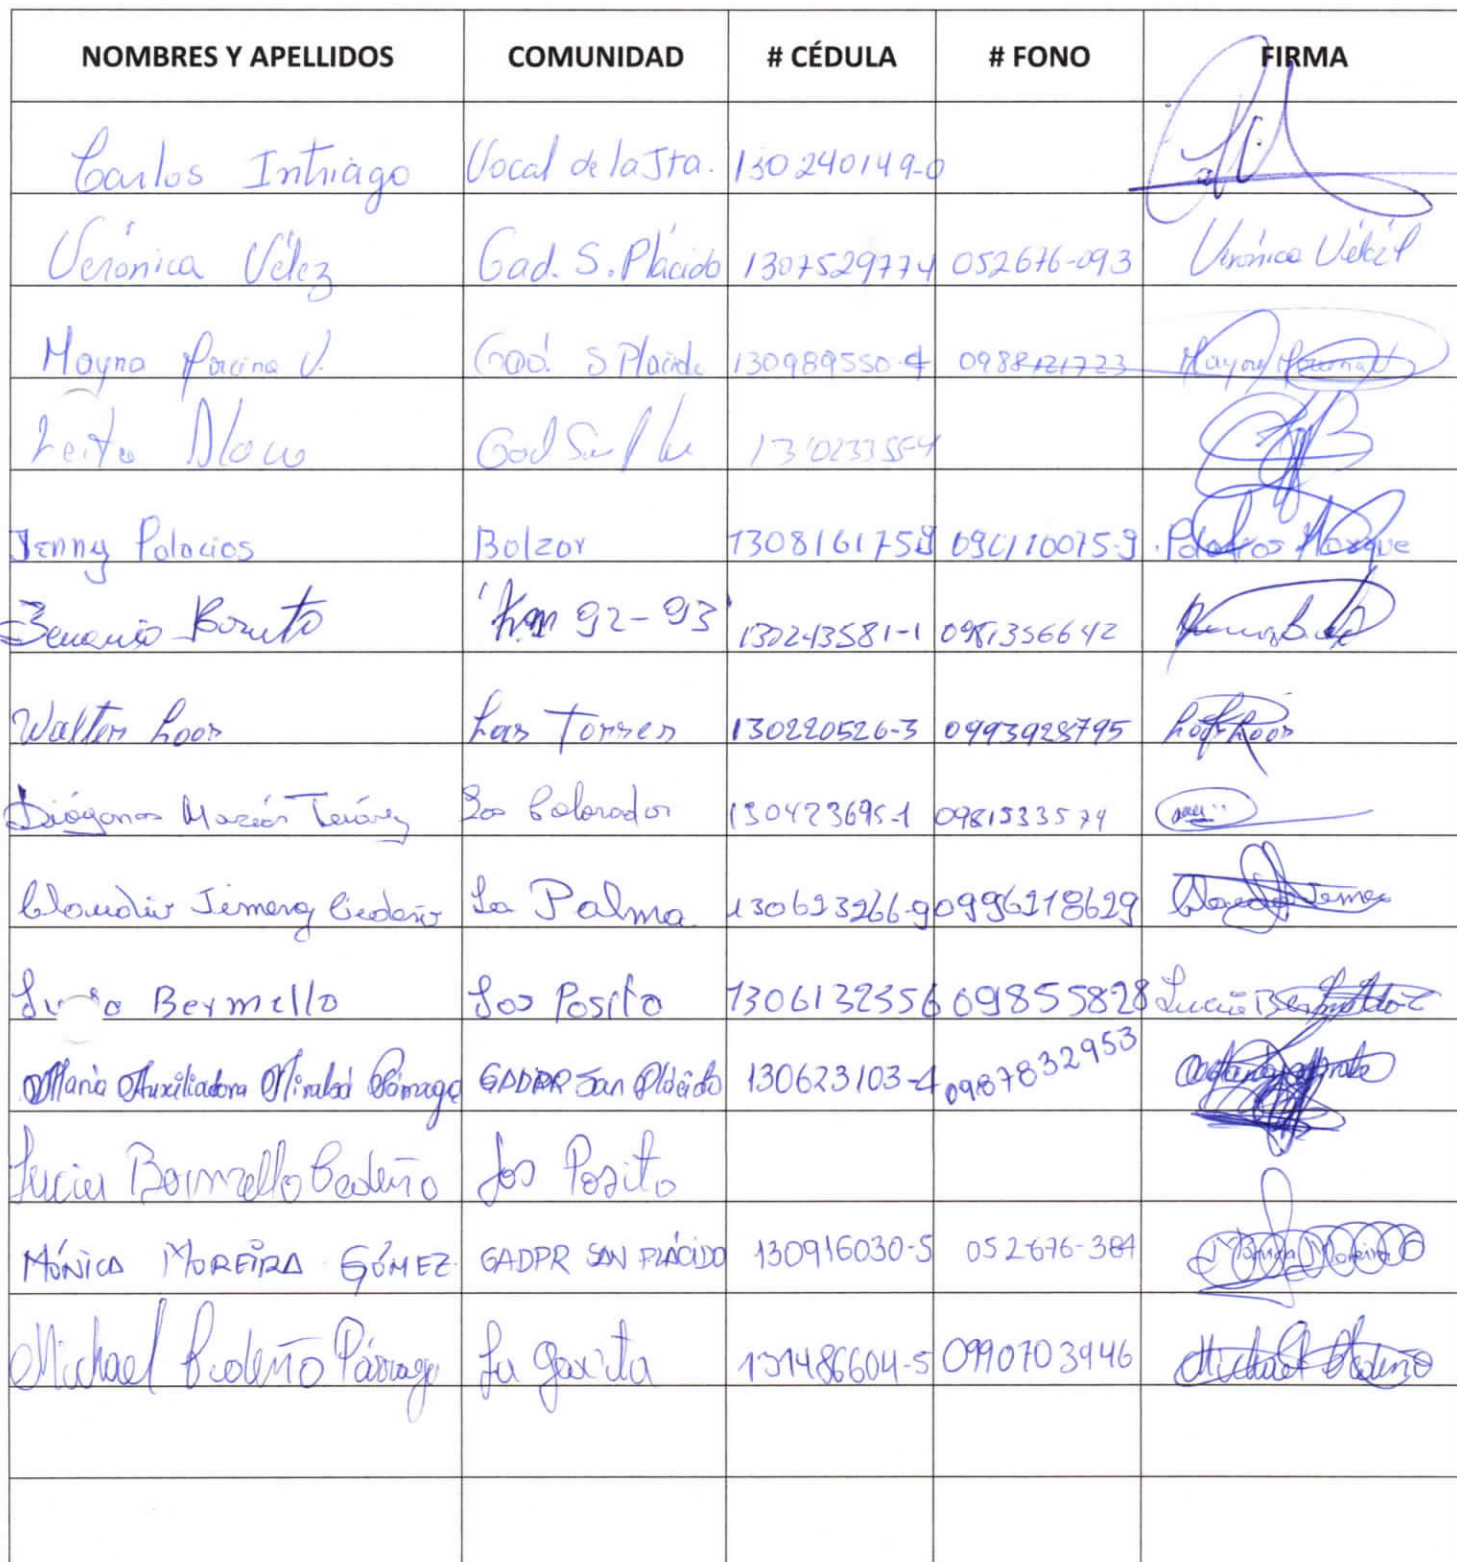 NOMBRES Y APELLIDOS COMUNIDAD # CÉDULA # FONO FIRMA
Carlos Intriago Vocal de la Jta. 130240149-0
Verónica Vélez Gad. S. Plácido 1307529774 052676-093 Verónica Vélez
Mayra V. Gad. S Placido 130989550-4 0988121723
Gad
Jenny Palacios Bolzar 130816175
Km 92-93 130243581-1 0981356642
Walter Loor Las Torres 130220526-3 0993928795 Loor
Diógenes Macías Los Colorados 130423695-1 0981533574
Claudio Jimenez Cedeño La Palma 130613266-9 0996218629
Bermello Los Posito 1306132356 09855828 Lucia
Maria Auxiliadora GADPR San Plácido 130623103-4 0987832953
Lucia Bermello Cedeño Los Posito
MÓNICA MOREIRA GÓMEZ GADPR SAN PLÁCIDO 130916030-5 052676-384 Mónica Moreira
Michael Cedeño Párraga La garita 131486604-5 0990703946 Michael Cedeño